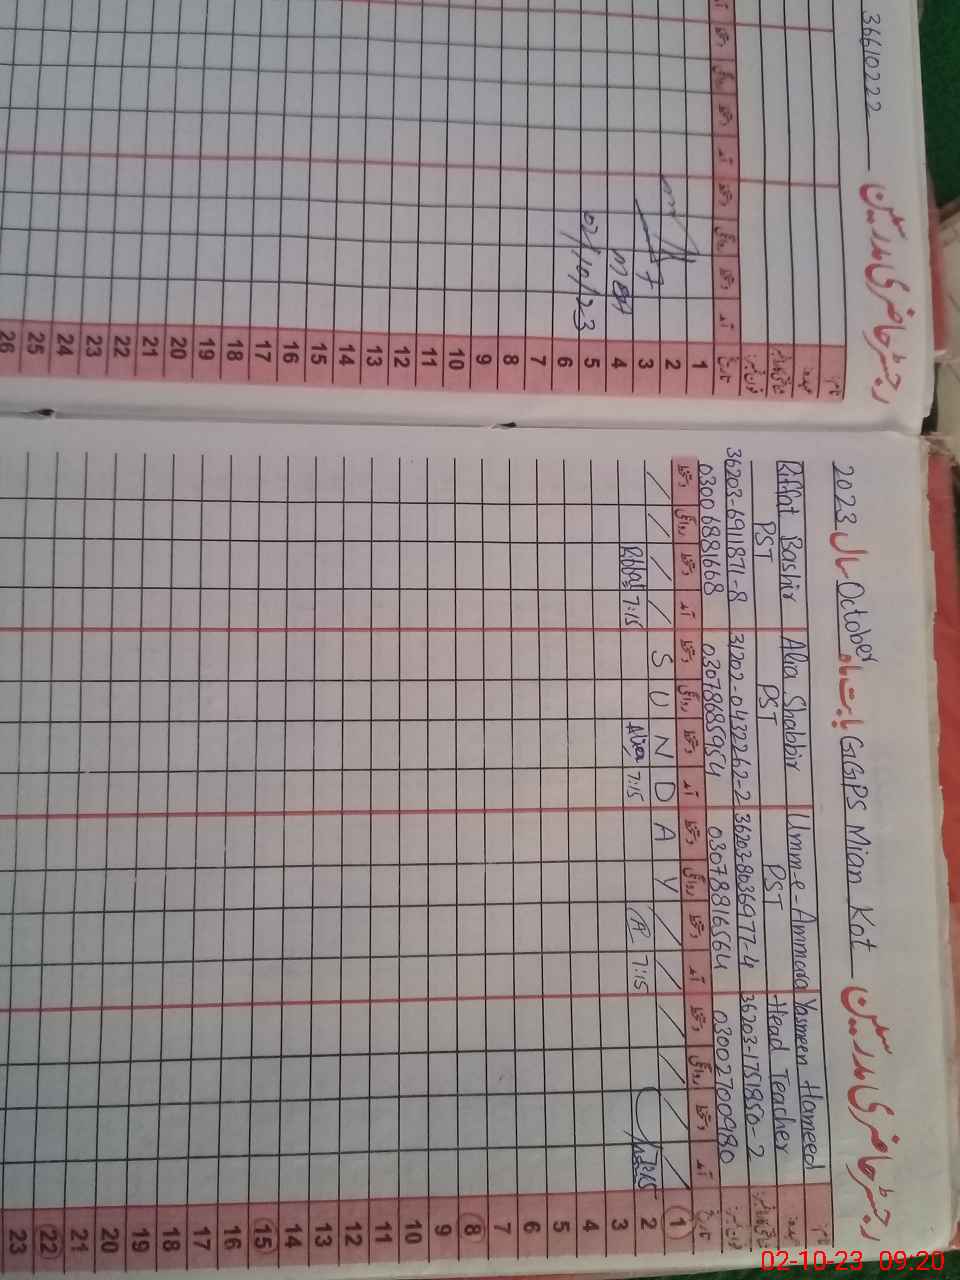 36610222 رجسٹر حاضری مدرسین
تاریخ
آمد دستخط روانگی دستخط
m EA
02/10/23
1
2
3
4
5
6
7
8
9
10
11
12
13
14
15
16
17
18
19
20
21
22
23
24
25
26
رجسٹر حاضری مدرسین
GGPS Mian Kot بابت ماہ October سال 2023
Riffat Bashir
PST
36203-6911871-8
03006881668
Alia Shabbir
PST
31202-0432262-2
03078685954
Umm-e-Ammara
PST
36203-8036977-4
03078816564
Yasmeen Hameed
Head Teacher
36203-1751850-2
03002700980
تاریخ
آمد دستخط روانگی دستخط
آمد دستخط روانگی دستخط
آمد دستخط روانگی دستخط
آمد دستخط روانگی دستخط
1 SUNDAY
2 Riffat 7:15 Alia 7:15 7:15 7:15
3
4
5
6
7
8
9
10
11
12
13
14
15
16
17
18
19
20
21
22
23
02-10-23 09:20